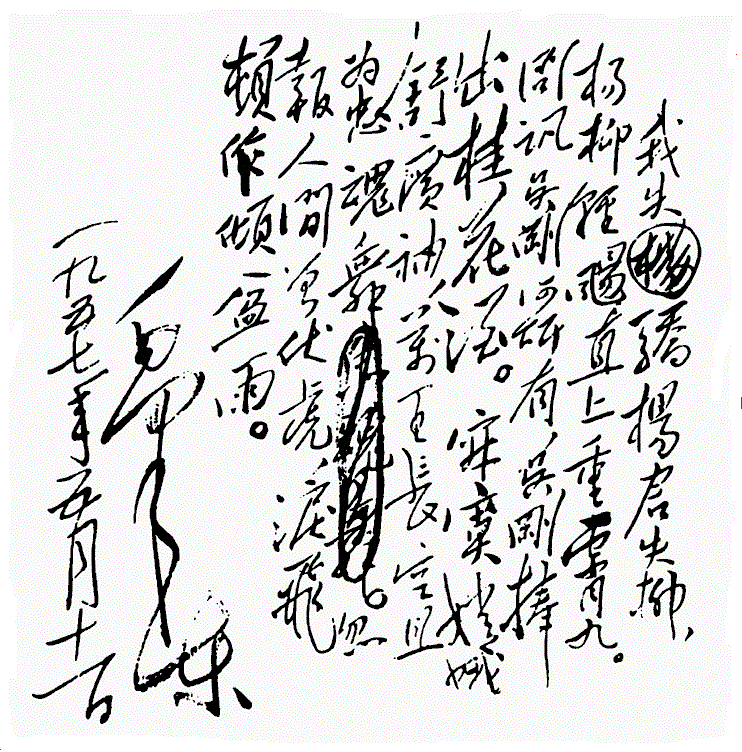 我失驕楊君失柳、
杨柳輕颺直上重霄九。
问讯吴剛何所有吴剛捧
出桂花酒。寂寞嫦娥
舒廣袖、萬里長空且
为忠魂舞。忽
報人間曾伏虎、淚飛
頓作傾盆雨。
毛泽东
一九五七年五月十一日